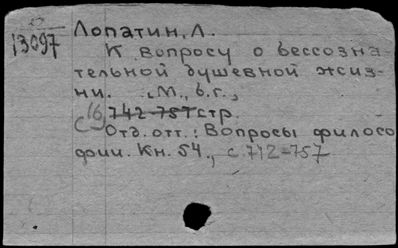 13097
Лопатин, Л.
К вопросу о бессозна-
тельной душевной жиз-
ни. М., б.г.,
16 с 742-757 стр.
Отд. отт.: Вопросы филосо
фии. Кн. 54., с. 742-757